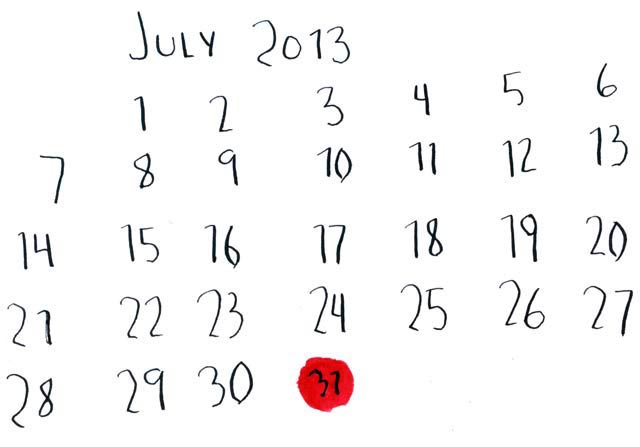 JULY 2013
1 2 3 4 5 6
7 8 9 10 11 12 13
14 15 16 17 18 19 20
21 22 23 24 25 26 27
28 29 30 31